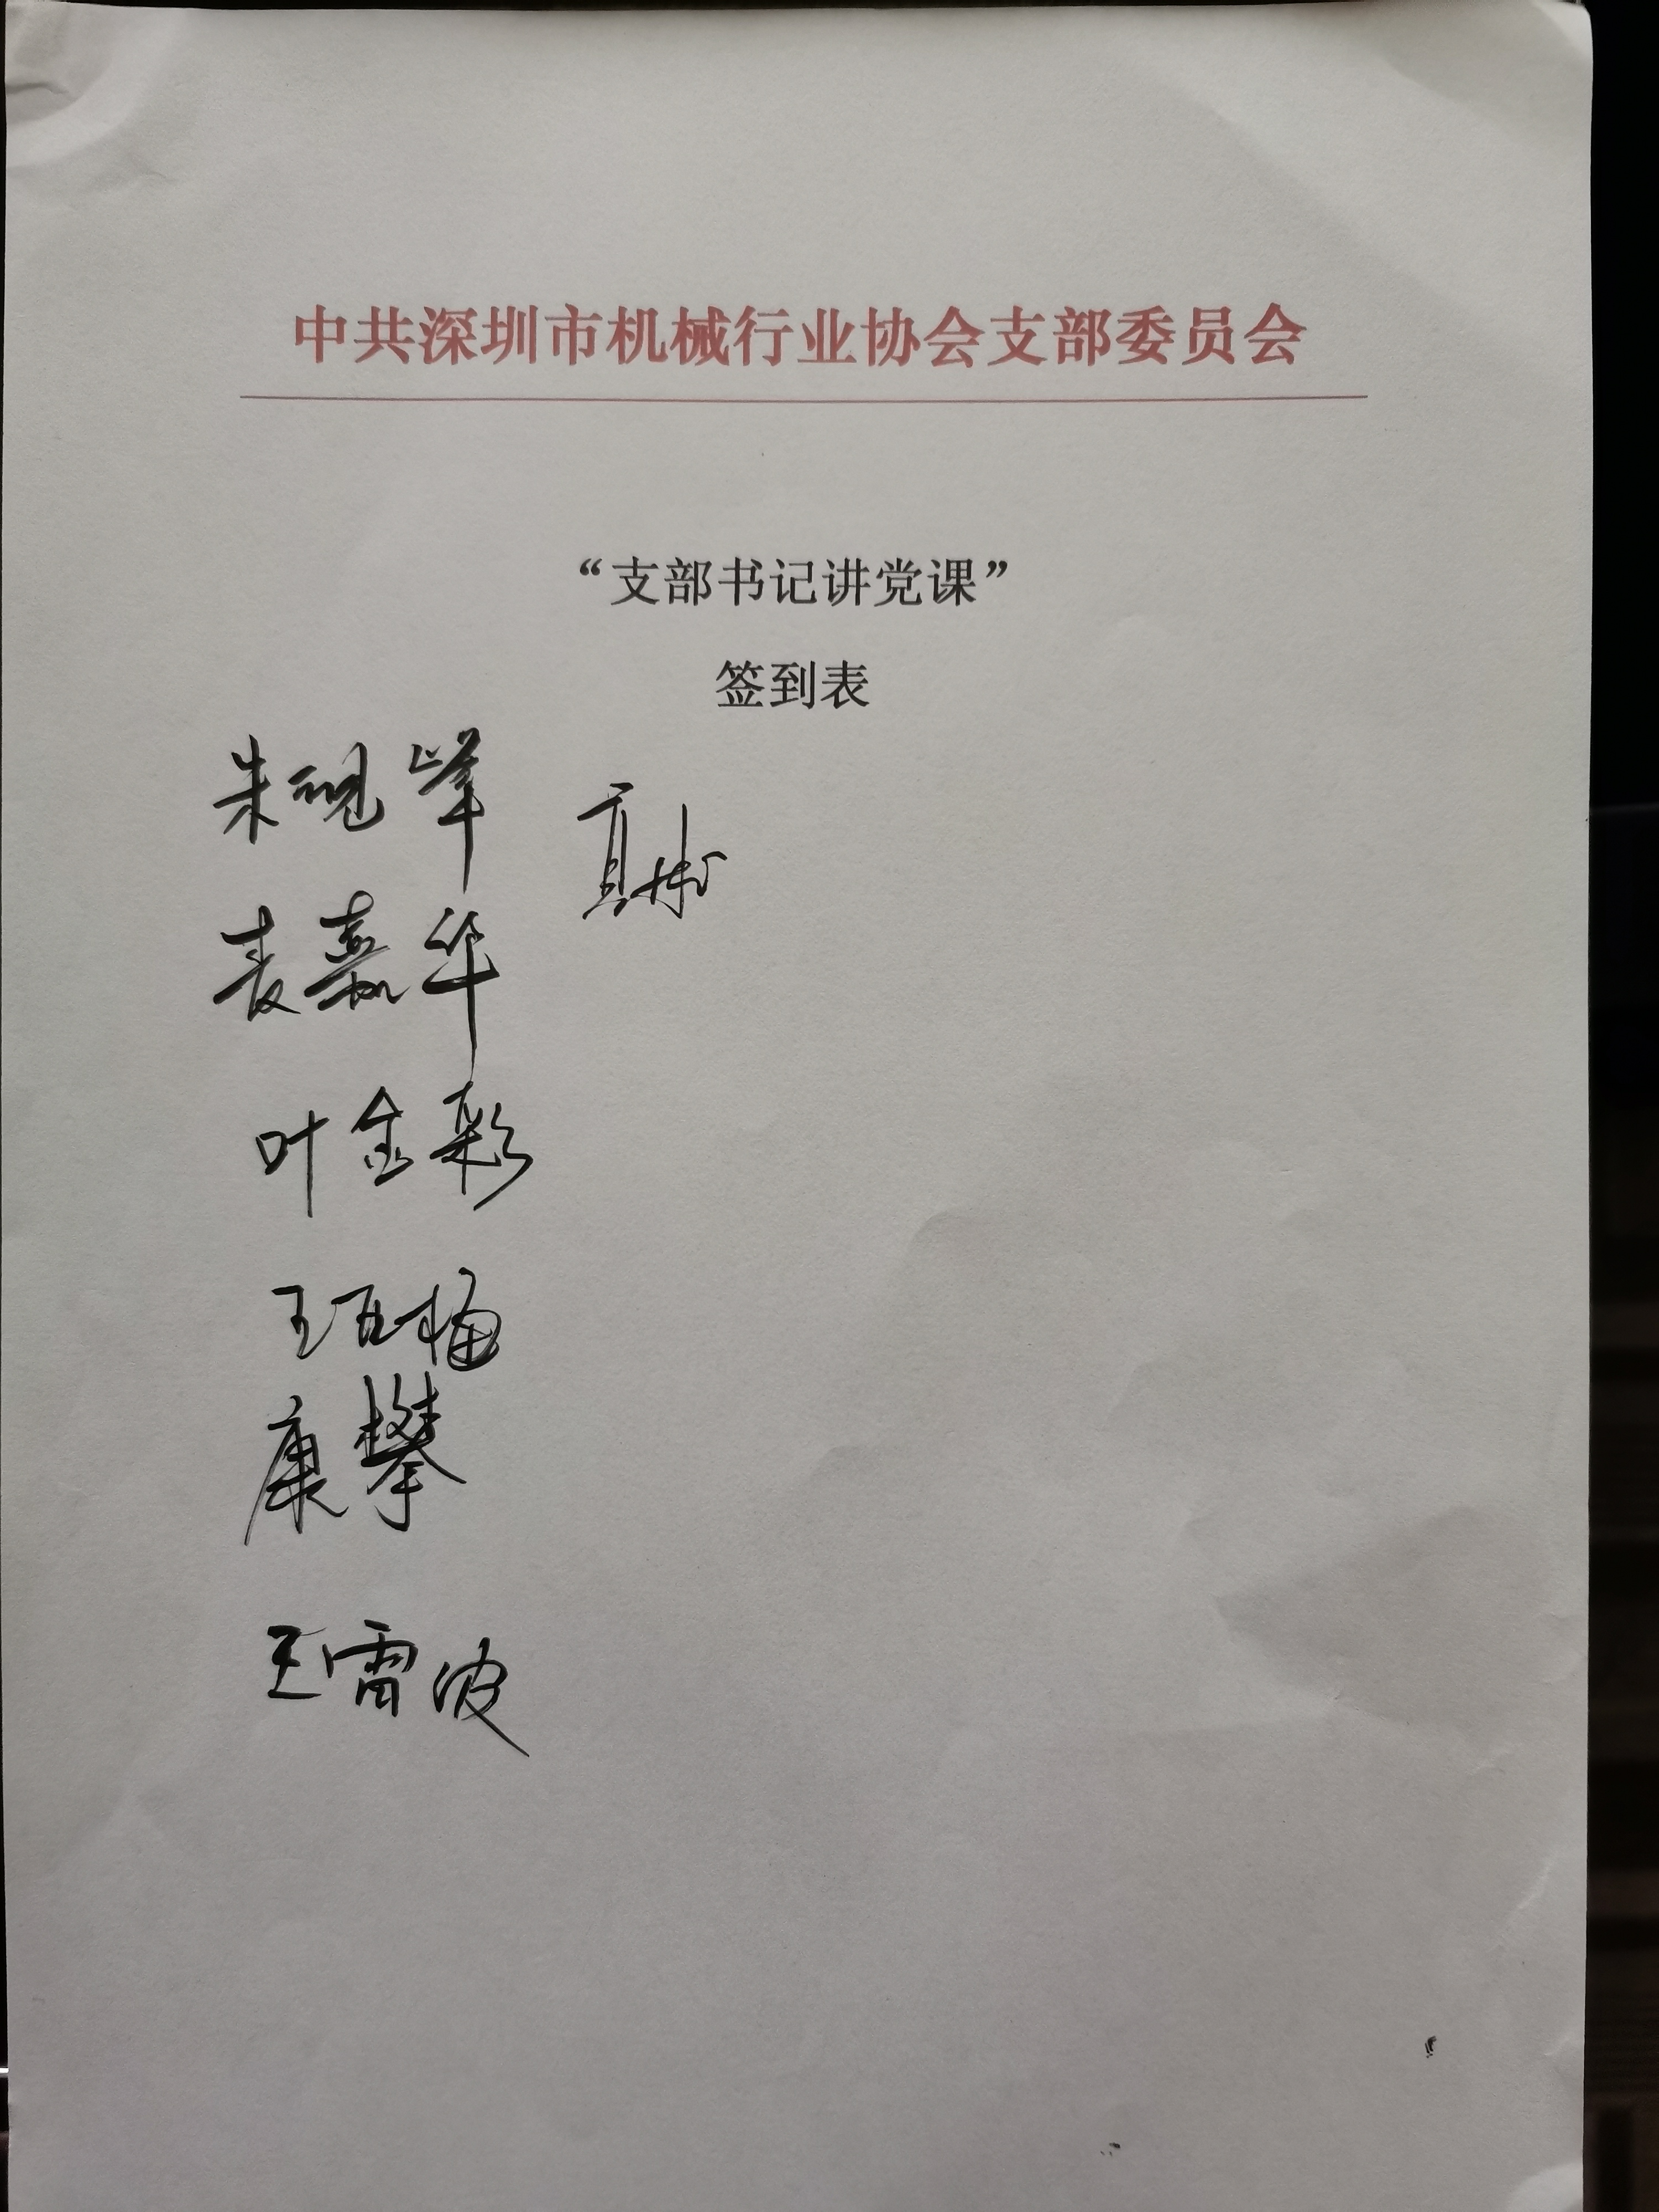 中共深圳市机械行业协会支部委员会
“支部书记讲党课”
签到表
朱砚峰
袁嘉华
叶金彩
王五梅
康攀
王雷波